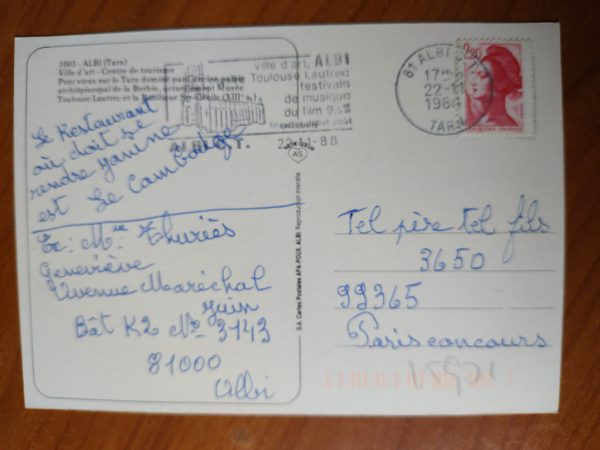 1003 - ALBI (Tarn)
Ville d'art - Centre de tourisme
Pont vieux sur le Tarn dominé par l'ancien palais
archiépiscopal de la Berbie, actuellement Musée
Toulouse-Lautrec et la Basilique Ste-Cécile (XIIIe s.)
ville d'art, ALBI
Toulouse Lautrec
festivals
de musique
du film 9,5
ALBI
22-11-88
81 ALBI
17H
22-11
1988
TARN
2,20
REPUBLIQUE FRANÇAISE
Le Restaurant
où doit se
rendre
est Le Cambouge
Ex: Mme Thuriès
Geneviève
Avenue Maréchal
Juin
Bât K2 No 3143
81000
Albi
S.A. Cartes Postales APA-POUX, ALBI Reproduction Interdite
AS
Tel père tel fils
3650
99365
Paris concours